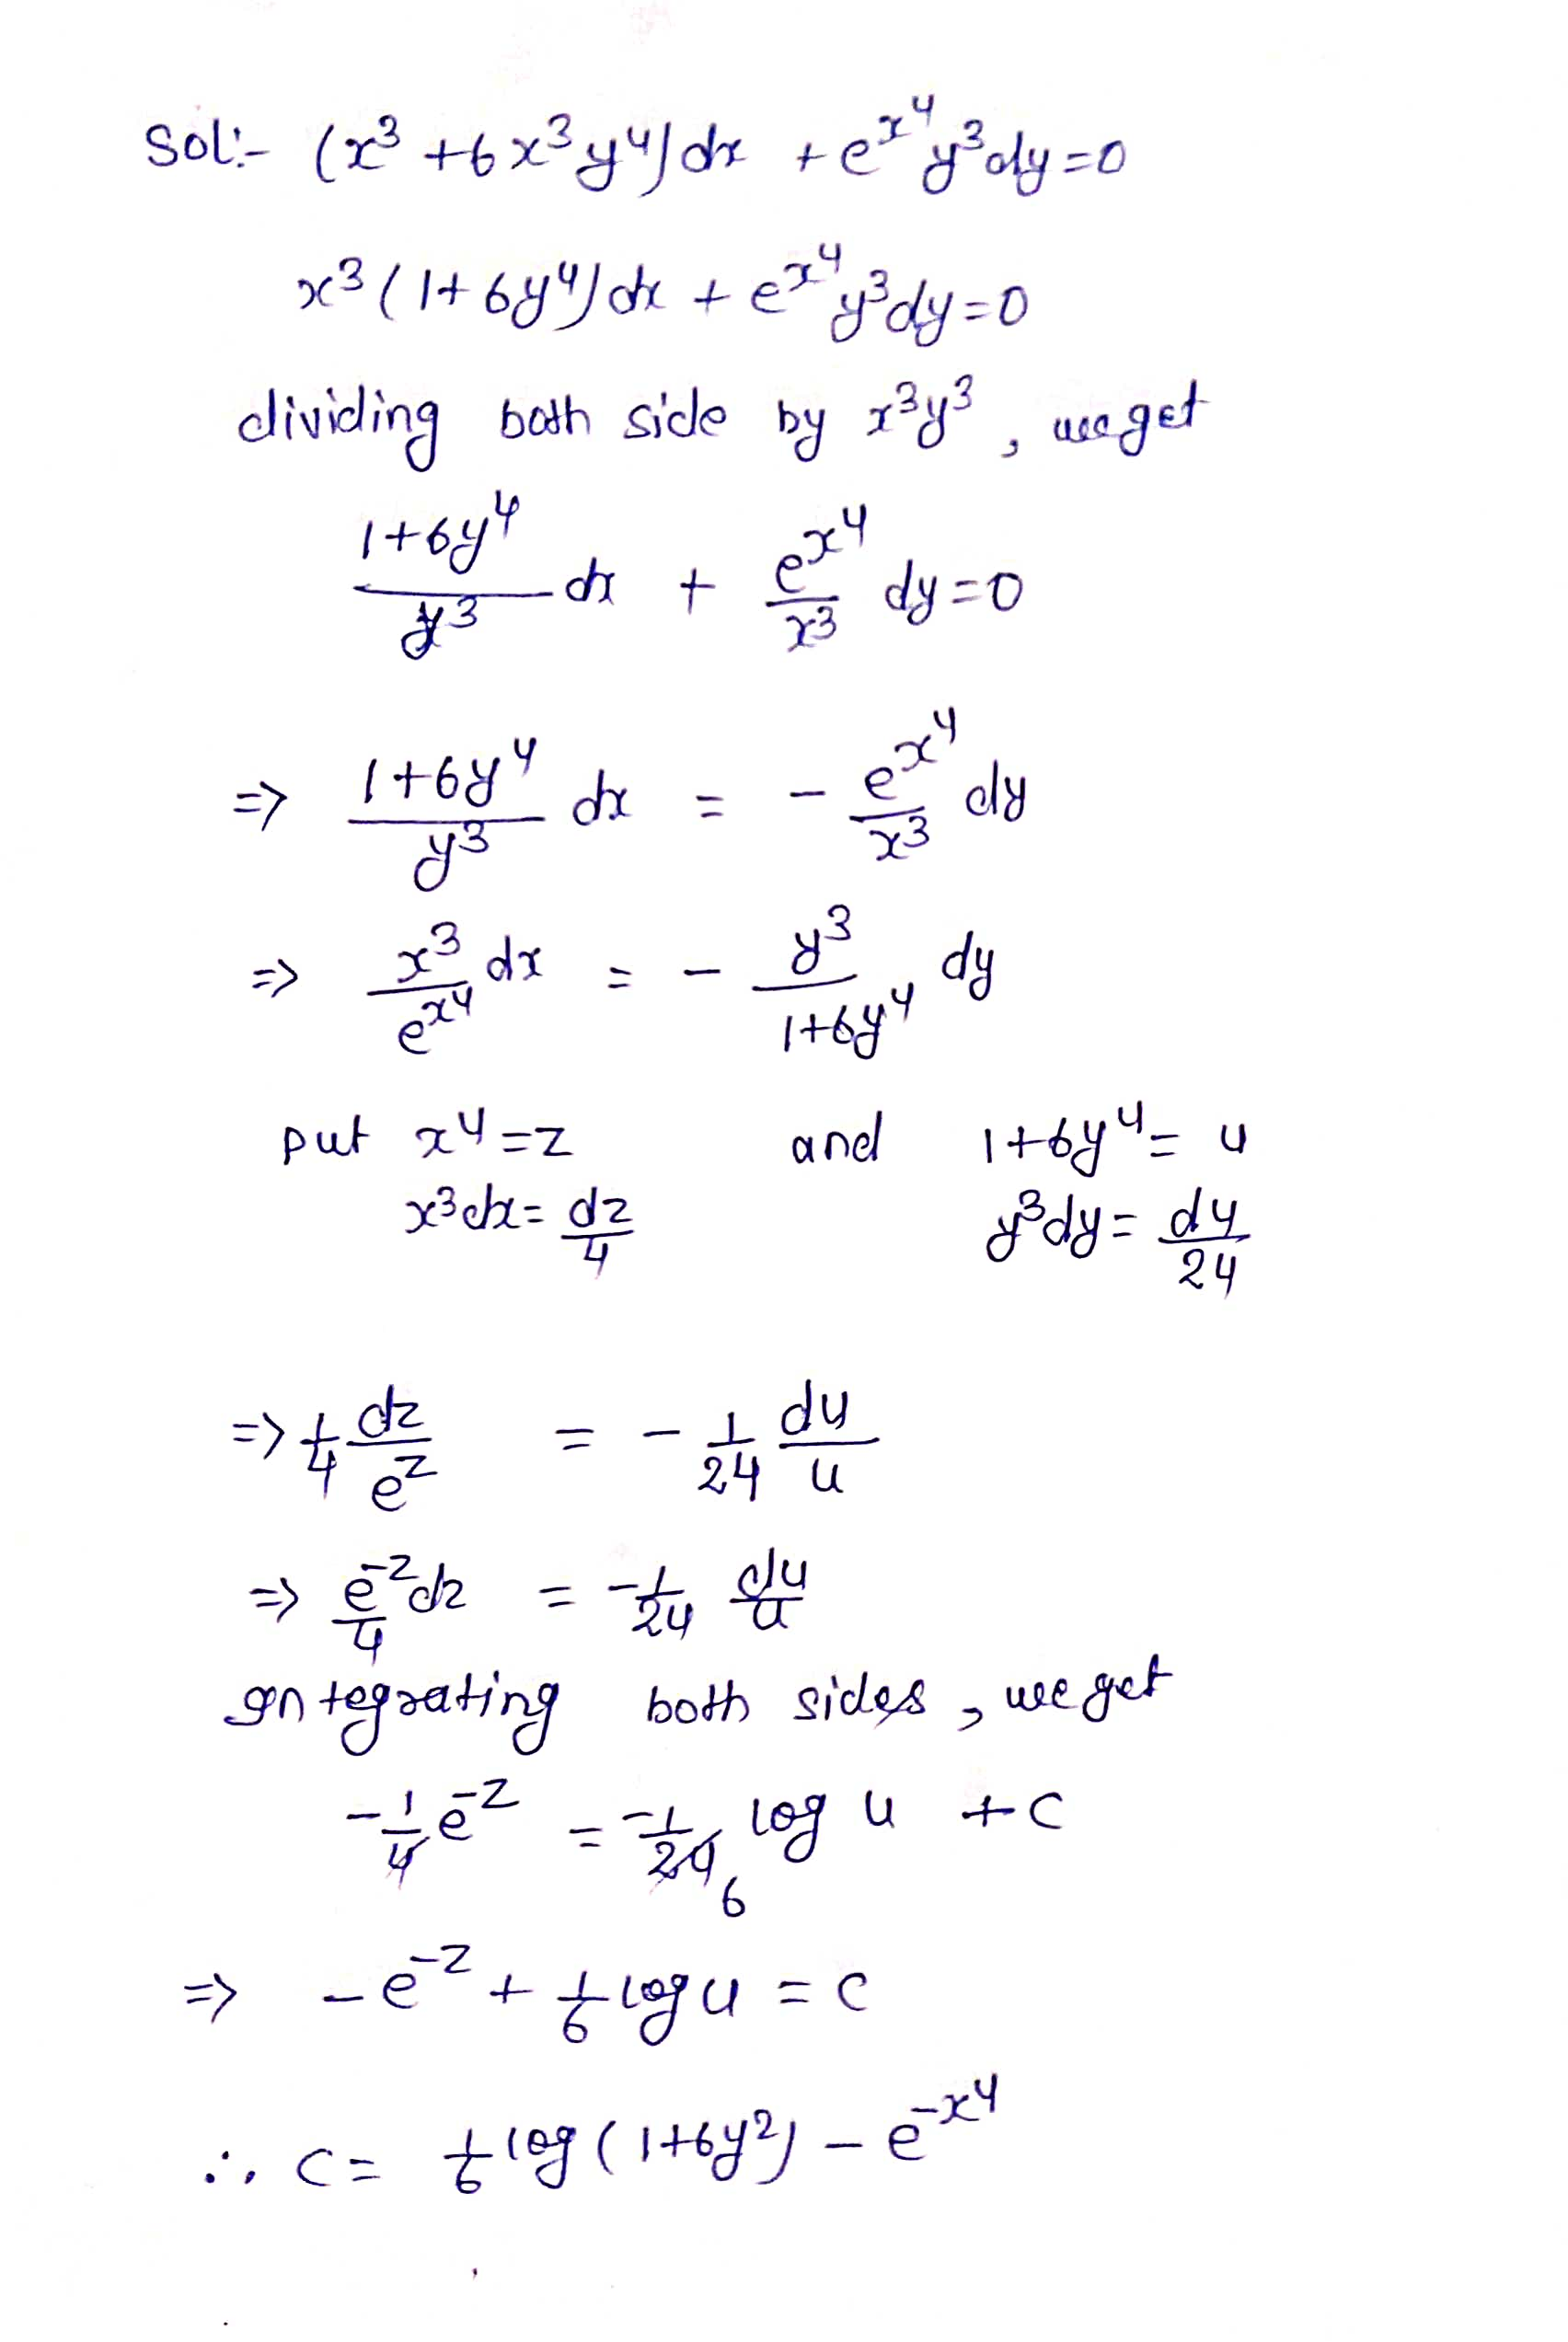 Sol:- (x³ + 6x³y⁴)dx + e^{x⁴} y³dy = 0
x³(1+6y⁴)dx + e^{x⁴} y³dy = 0
dividing both side by x³y³, we get
\frac{1+6y⁴}{y³} dx + \frac{e^{x⁴}}{x³} dy = 0
=> \frac{1+6y⁴}{y³} dx = - \frac{e^{x⁴}}{x³} dy
=> \frac{x³}{e^{x⁴}} dx = - \frac{y³}{1+6y⁴} dy
put x⁴ = z and 1+6y⁴ = u
x³dx = \frac{dz}{4} y³dy = \frac{du}{24}
=> \frac{1}{4} \frac{dz}{e^z} = - \frac{1}{24} \frac{du}{u}
=> \frac{e^{-z}}{4} dz = -\frac{1}{24} \frac{du}{u}
Integrating both sides, we get
-\frac{1}{4} e^{-z} = -\frac{1}{24} log u + c
6
=> -e^{-z} + \frac{1}{6} log u = c
∴ c = \frac{1}{6} log(1+6y²) - e^{-x⁴}